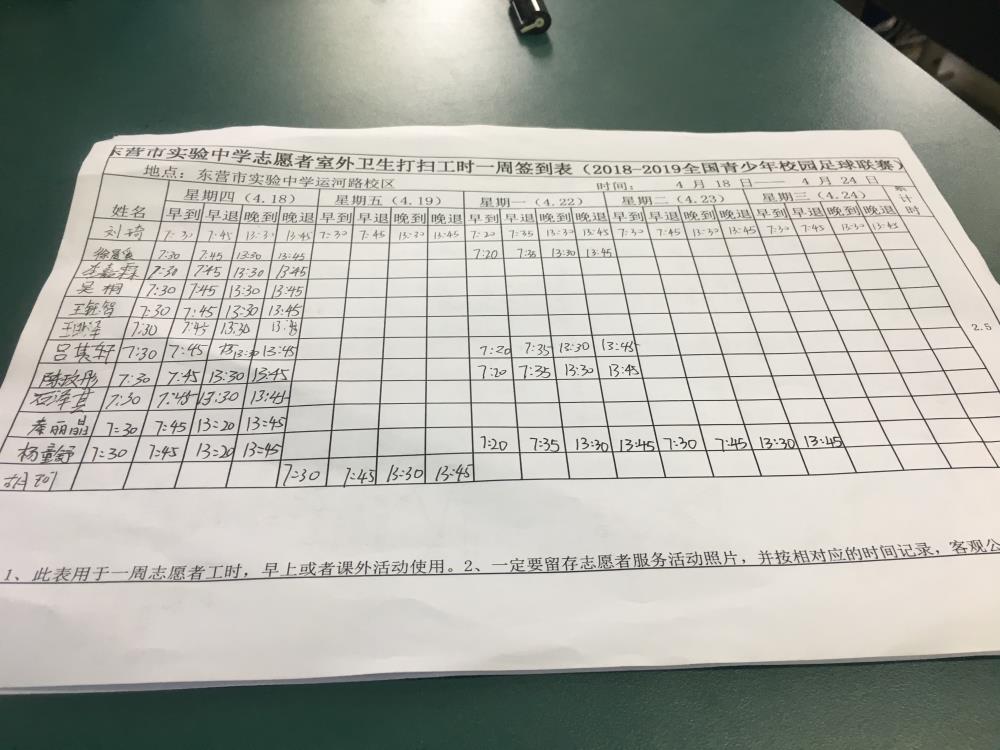 东营市实验中学志愿者室外卫生打扫工时一周签到表（2018-2019全国青少年校园足球联赛）
地点：东营市实验中学运河路校区 时间： 4 月 18 日—— 4 月 24 日
姓名 星期四（4.18） 星期五（4.19） 星期一（4.22） 星期二（4.23） 星期三（4.24） 累计时
早到 早退 晚到 晚退 早到 早退 晚到 晚退 早到 早退 晚到 晚退 早到 早退 晚到 晚退 早到 早退 晚到 晚退
刘琦 7:30 7:45 13:30 13:45 7:30 7:45 13:30 13:45 7:20 7:35 13:30 13:45 7:30 7:45 13:30 13:45 7:30 7:45 13:30 13:45
7:30 7:45 13:30 13:45 7:20 7:35 13:30 13:45
李嘉霖 7:30 7:45 13:30 13:45
吴桐 7:30 7:45 13:30 13:45
王钰智 7:30 7:45 13:30 13:45
7:30 7:45 13:30 13:45
2.5
吕其轩 7:30 7:45 13:30 13:45 7:20 7:35 13:30 13:45
陈玟彤 7:30 7:45 13:30 13:45 7:20 7:35 13:30 13:45
石泽其 7:30 7:45 13:30 13:45
秦丽晶 7:30 7:45 13:20 13:45
杨童舒 7:30 7:45 13:20 13:45 7:20 7:35 13:30 13:45 7:30 7:45 13:30 13:45
胡珂 7:30 7:45 13:30 13:45
1、此表用于一周志愿者工时，早上或者课外活动使用。2、一定要留存志愿者服务活动照片，并按相对应的时间记录，客观公